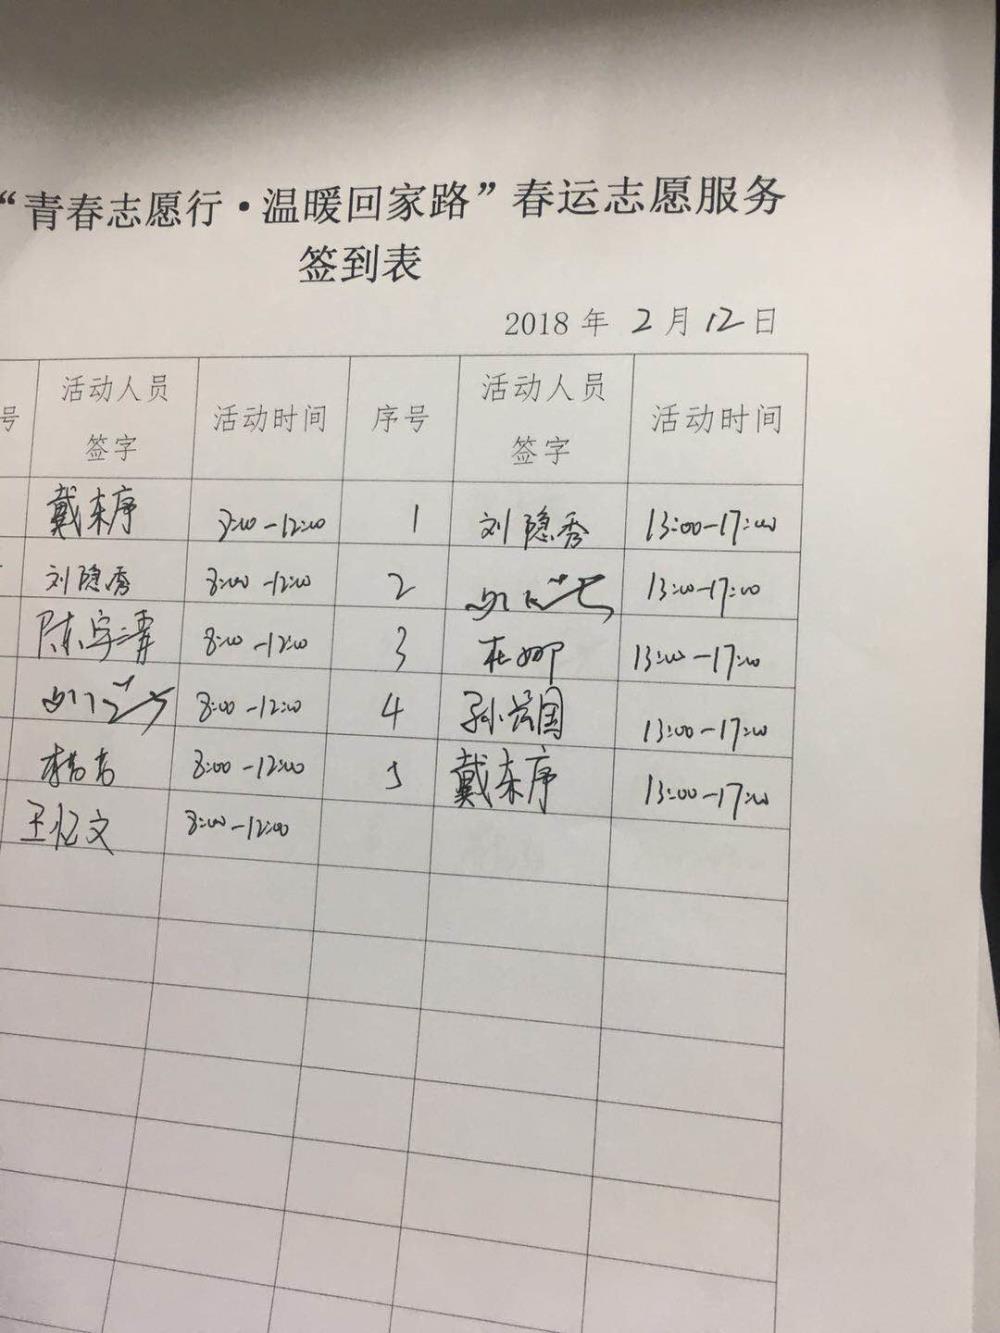 “青春志愿行·温暖回家路”春运志愿服务
签到表
2018 年 2 月 12 日
号 活动人员签字 活动时间 序号 活动人员签字 活动时间
戴东序 8:00-12:00 1 刘隐秀 13:00-17:00
刘隐秀 8:00-12:00 2 13:00-17:00
陈宇 8:00-12:00 3 杜娜 13:00-17:00
8:00-12:00 4 孙兴国 13:00-17:00
8:00-12:00 5 戴东序 13:00-17:00
王忆文 8:00-12:00